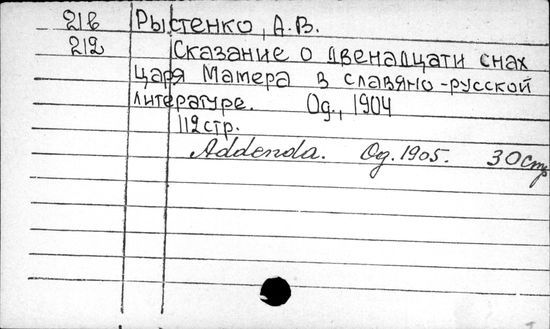 21б Рыстенко, А.В.
212 Сказание о двенадцати снах
царя Мамера в славяно-русской
литературе. Од., 1904
112 стр.
Addenda. Од. 1905. 30 стр